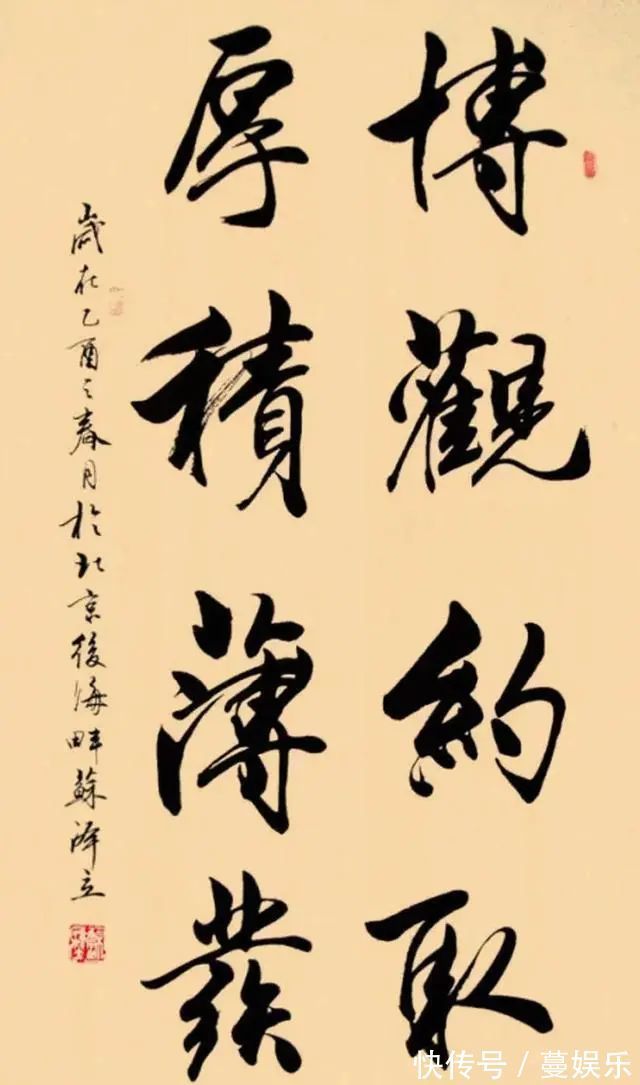 博觀約取
厚積薄發
歲在乙酉之春月於北京後海畔蘇澤立
快传号/蔓娱乐